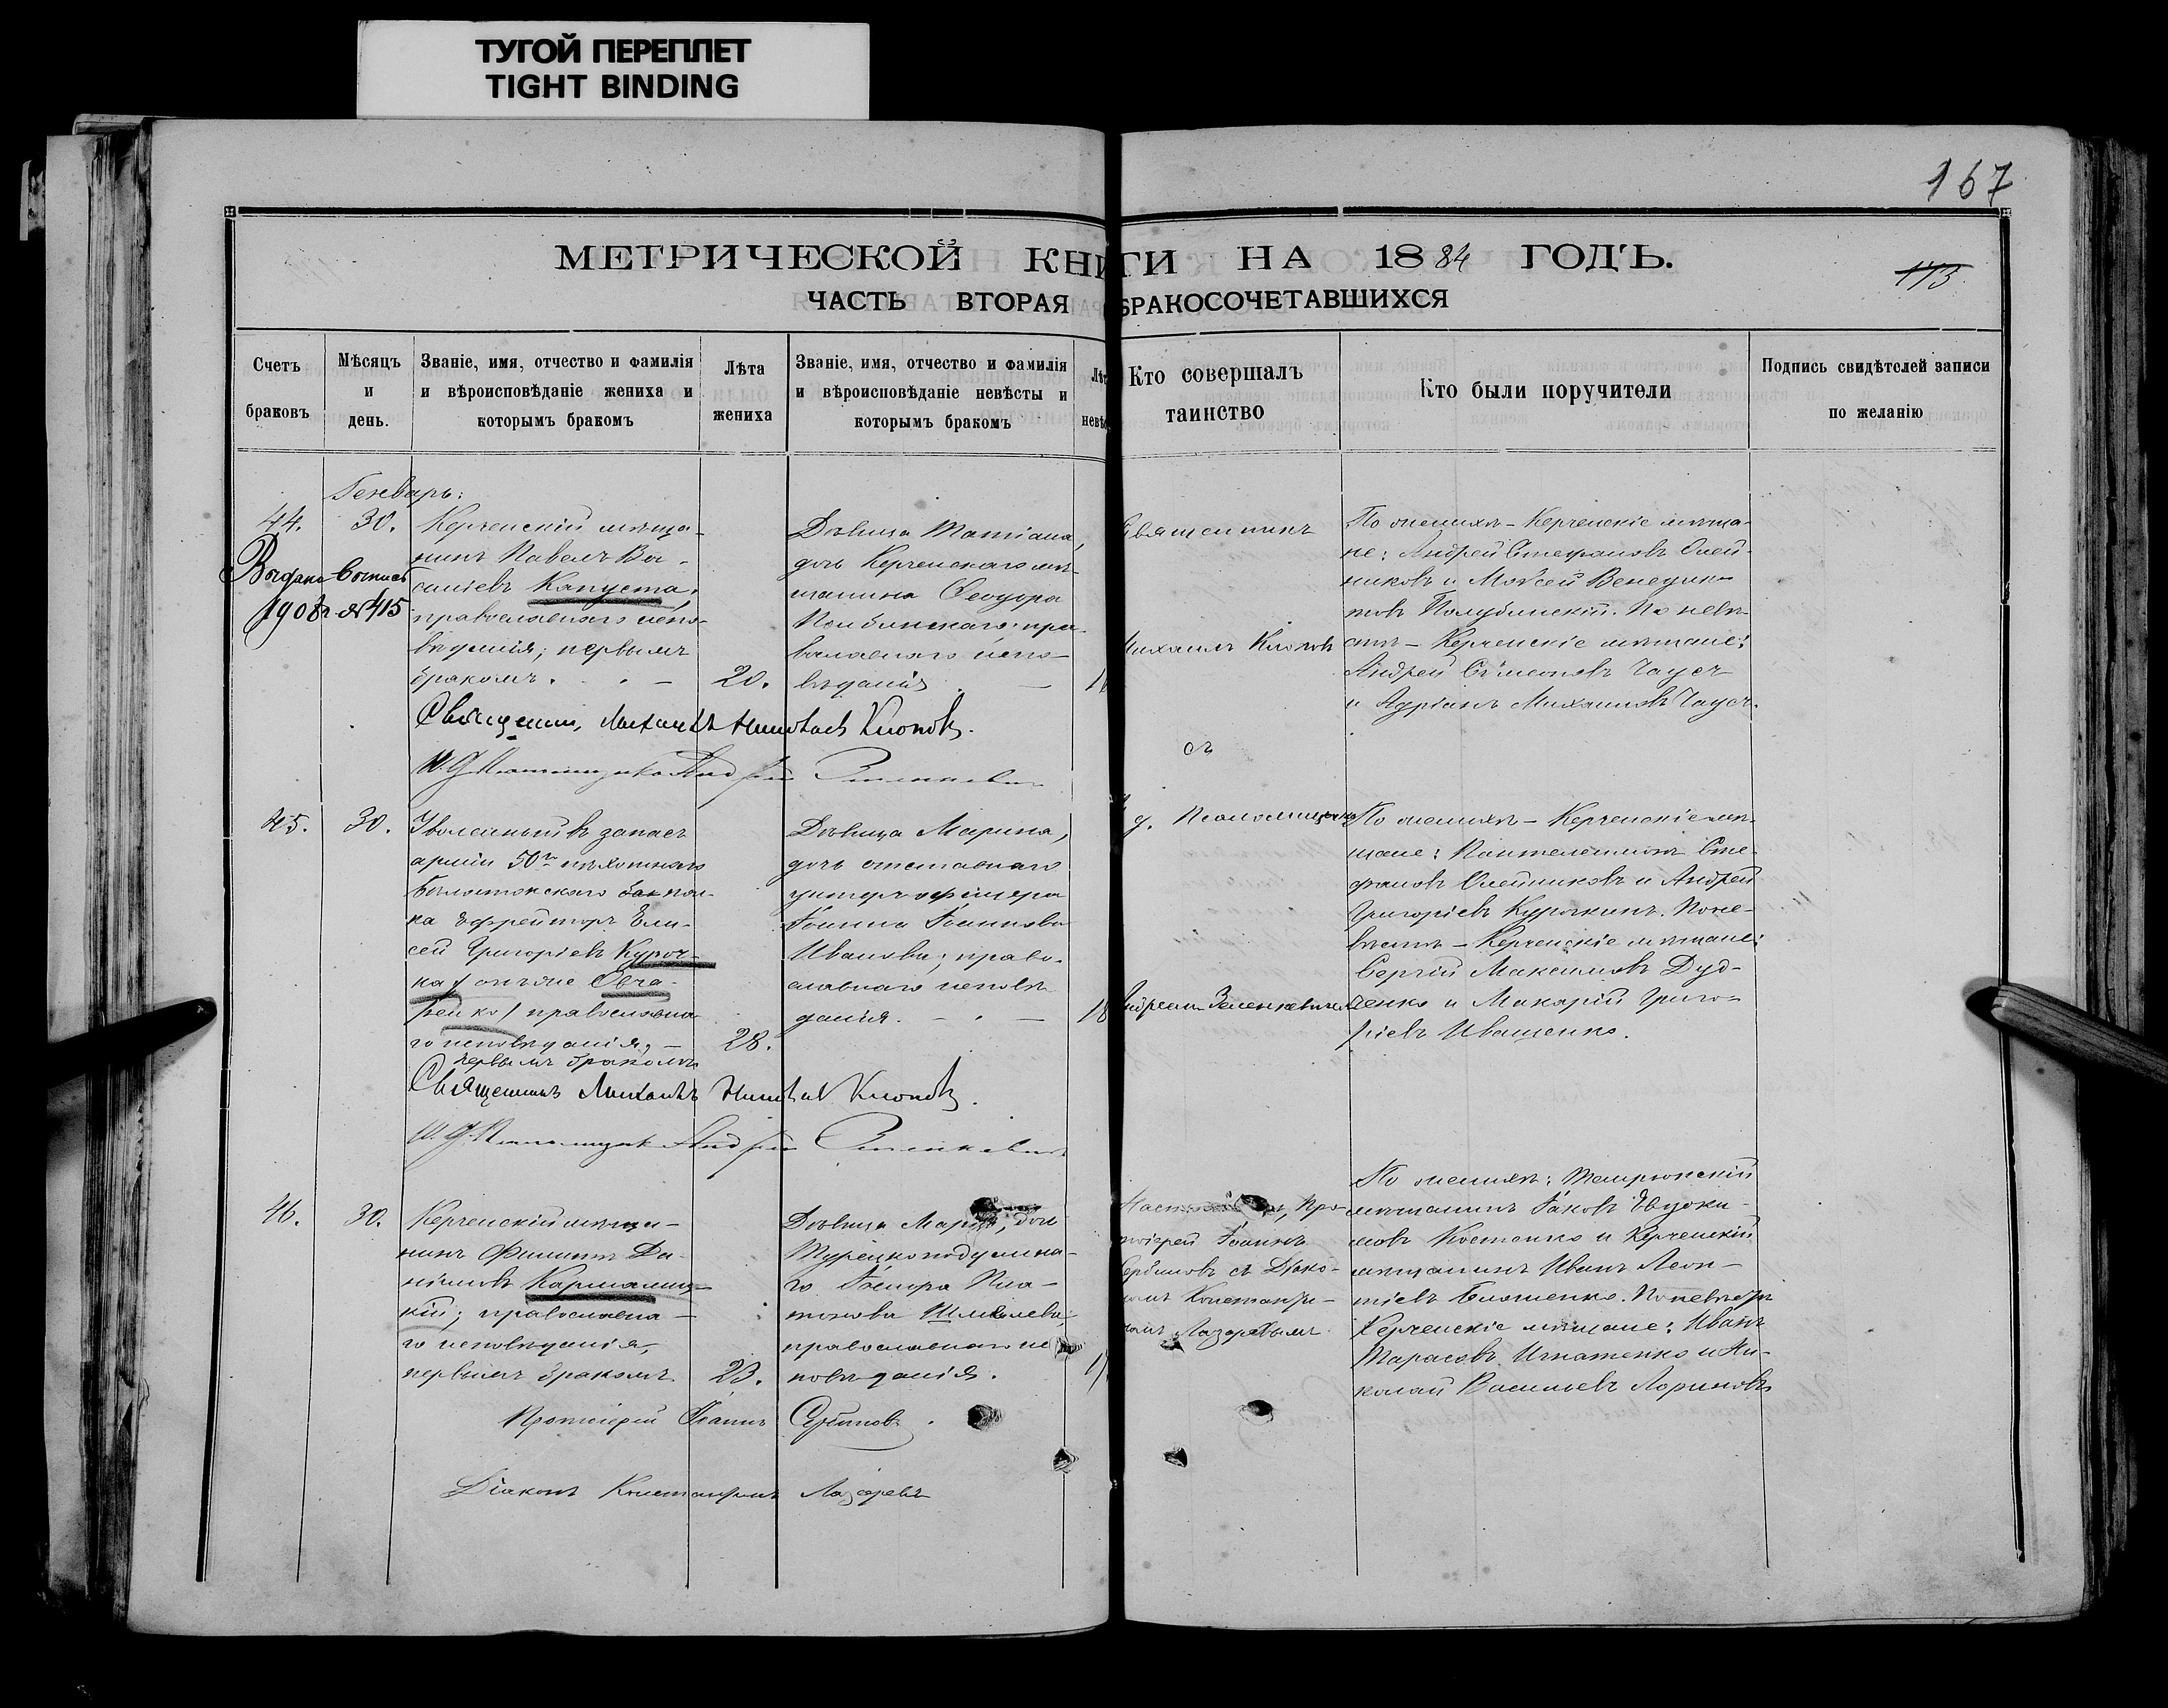 ТУГОЙ ПЕРЕПЛЕТ
TIGHT BINDING
167
МЕТРИЧЕСКОЙ КНИГИ НА 1884 ГОДЪ.
173
ЧАСТЬ ВТОРАЯ БРАКОСОЧЕТАВШИХСЯ
Счетъ
браковъ
Мѣсяцъ
и
день.
Званіе, имя, отчество и фамилія
и вѣроисповѣданіе жениха и
которымъ бракомъ
Лѣта
жениха
Званіе, имя, отчество и фамилія
и вѣроисповѣданіе невѣсты и
которымъ бракомъ
Кто совершалъ
таинство
Кто были поручители
Подпись свидѣтелей записи
по желанію
Генварь:
44.
Выдана выпись
1908 г. № 415
30.
Керченскій мѣща-
нинъ Павелъ Ва-
силіевъ Капуста,
православнаго испо-
вѣданія; первымъ
бракомъ.
20.
Дѣвица Татіана,
дочь Керченскаго мѣ-
щанина Ѳеодора
пра-
вославнаго испо-
вѣданія
Священникъ
Михаилъ Клоповъ
съ
По женихѣ - Керченскіе мѣща-
не: Андрей Стефановъ Олей-
никовъ и Моѵсей Венедик-
товъ Полубинскій. По невѣ-
стѣ - Керченскіе мѣщане:
Андрей Сѵмеоновъ Чаусъ
и Адріанъ Михаиловъ Чаусъ.
Священникъ Михаилъ Клоповъ.
И. д. Псаломщика Андрей Зеленкевичъ
45.
30.
Уволенный въ запасъ
арміи 50го пѣхотнаго
Бѣлостокскаго пол-
ка Ефрейторъ Ели-
сей Григоріевъ Куроч-
ка / онъ же Овча-
ренко / православна-
го исповѣданія, -
первымъ бракомъ
28.
Дѣвица Марина,
дочь отставнаго
унтеръ-офицера
Іоанна Іоаннова
Иванова; право-
славнаго исповѣ-
данія.
18
д. Псаломщика
Андреемъ Зеленкевичемъ
По женихѣ - Керченскіе мѣ-
щане: Пантелеимонъ Сте-
фановъ Олейниковъ и Андрей
Григоріевъ Курочкинъ. По не-
вѣстѣ - Керченскіе мѣщане:
Сергій Максимовъ Дуд-
ченко и Макарій Григо-
ріевъ Иващенко.
Священникъ Михаилъ Клоповъ.
И. д. Псаломщика Андрей Зеленкевичъ
46.
30.
Керченскій мѣща-
нинъ Филиппъ Да-
ніиловъ
кій; православна-
го исповѣданія,
первымъ бракомъ
23.
Дѣвица Марія, дочь
Турецкоподданна-
го Пла-
тонова
православнаго ис-
повѣданія.
Про-
тоіерей Іоаннъ
Сербиновъ съ Діако-
номъ Константи-
номъ Лазаревымъ
По женихѣ: Темрюкскій
мѣщанинъ Іаковъ Евдоки-
мовъ Костенко и Керченскій
мѣщанинъ Иванъ Леон-
тіевъ По невѣстѣ
Керченскіе мѣщане: Иванъ
Тарасовъ Игнатенко и Ни-
колай Васильевъ Лариновъ
Протоіерей Іоаннъ Сербиновъ.
Діаконъ Константинъ Лазаревъ